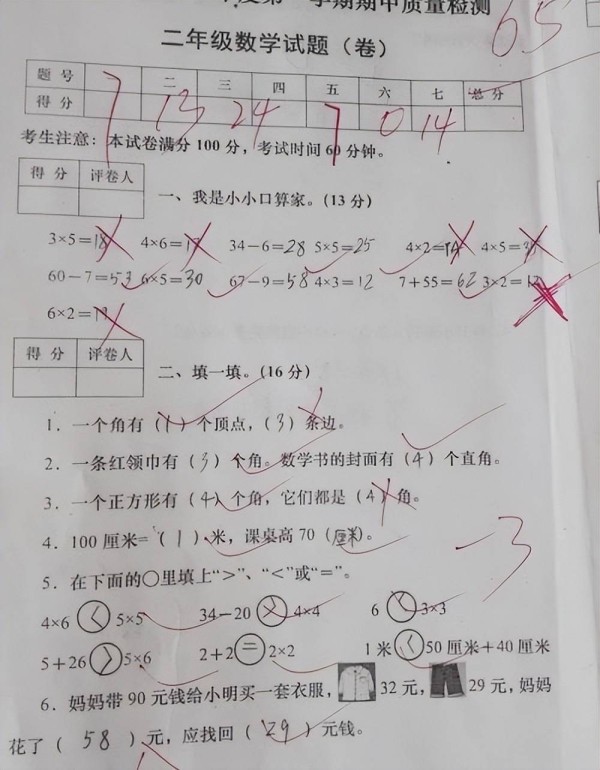 期中质量检测
65
二年级数学试题（卷）
题号 二 三 四 五 六 七 总分
得分 7 13 24 7 0 14
考生注意：本试卷满分 100 分，考试时间 60 分钟。
得分 评卷人
一、我是小小口算家。（13 分）
3×5=18 4×6= 34－6=28 5×5=25 4×2= 4×5=
60－7=53 6×5=30 67－9=58 4×3=12 7＋55=62 3×2=
6×2=
得分 评卷人
二、填一填。（16 分）
1．一个角有（1）个顶点，（3）条边。
2．一条红领巾有（3）个角。数学书的封面有（4）个直角。
3．一个正方形有（4）个角，它们都是（4）角。
4．100 厘米=（1）米，课桌高 70（厘米）。
-3
5．在下面的○里填上“>”、“<”或“=”。
4×6 < 5×5 34－20 4×4 6 < 3×3
5＋26 > 5×6 2＋2 = 2×2 1 米 < 50 厘米＋40 厘米
6．妈妈带 90 元钱给小明买一套衣服， 32 元， 29 元，妈妈
花了（ 58 ）元，应找回（ 29 ）元钱。